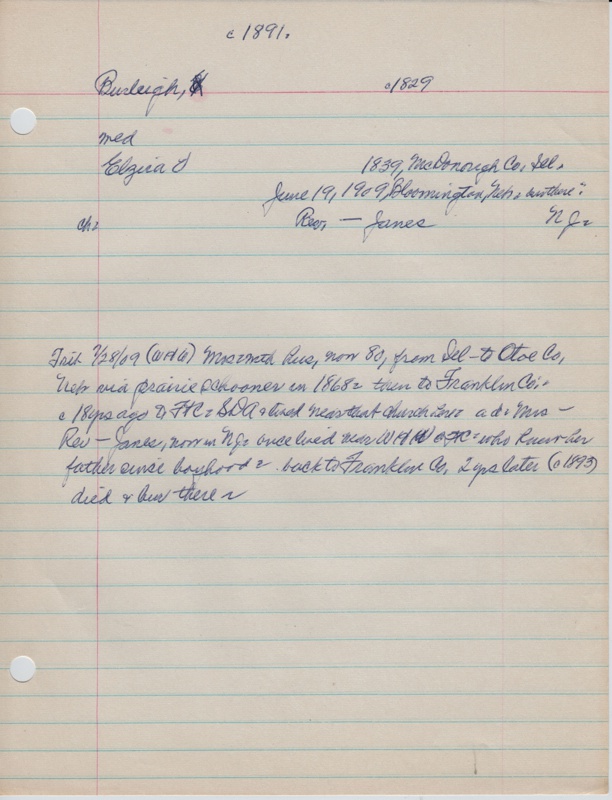 c 1891.
Burleigh, c1829
med
Elzira J 1839, McDonough Co, Ill.
June 19, 1909, Bloomington, Neb.
ch: Rev. — Janes N J.
Trib 7/28/09 (WHW) Mrs & mtd hus, now 80, from Ill – to Otoe Co,
Neb via prairie schooner in 1868 = then to Franklin Co.
c 18 yrs ago to FHC = SDA & lived near that church here = a d = Mrs –
Rev – Janes, now in N J = once lived near WHW = who knew her
father since boyhood = back to Franklin Co, 2 yrs later (c1893)
died & bur there =